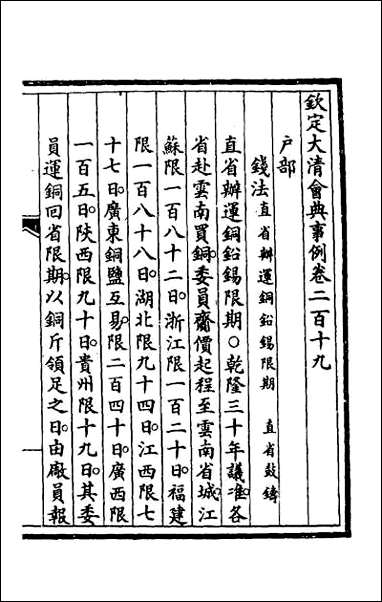 欽定大清會典事例卷二百十九
户部
錢法直省辦運銅鉛錫限期 直省鼓鑄
直省辦運銅鉛錫限期○乾隆三十年議准各
省赴雲南買銅委員齎價起程至雲南省城江
蘇限一百八十二日浙江限一百二十日福建
限一百八十八日湖北限九十四日江西限七
十七日廣東銅鹽互易限二百四十日廣西限
一百五日陝西限九十日貴州限十九日其委
員運銅回省限期以銅斤領足之日由廠員報